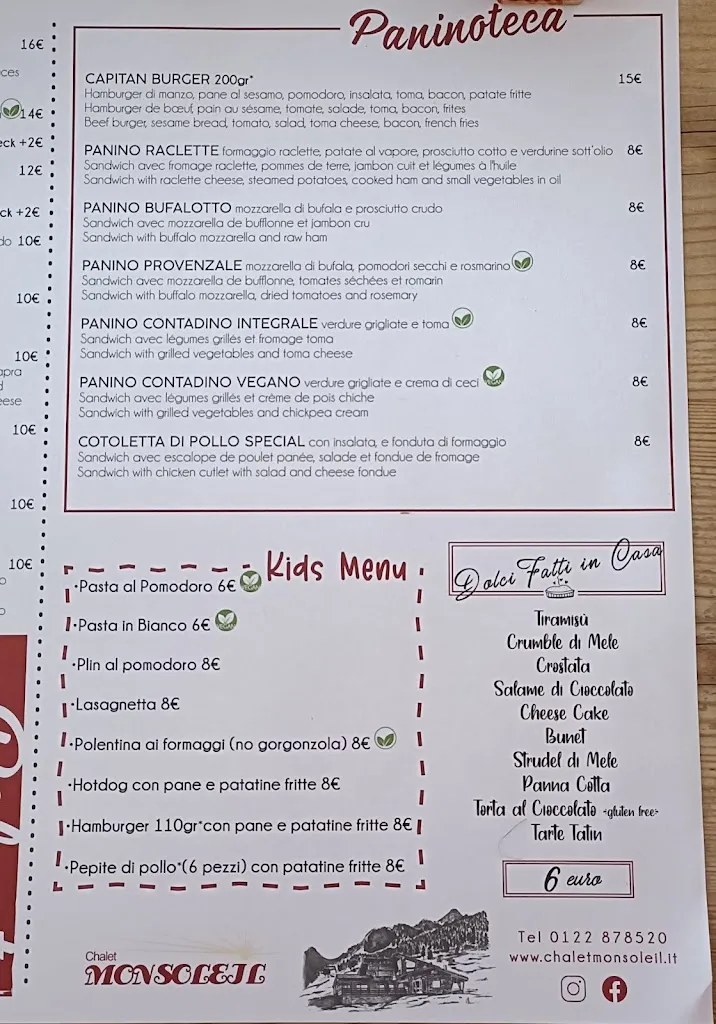 16€
ces
14€
eck +2€
12€
ck +2€
do 10€
10€
10€
apra
d
eese
10€
10€
10€
o
o
Paninoteca
CAPITAN BURGER 200gr* 15€
Hamburger di manzo, pane al sesamo, pomodoro, insalata, toma, bacon, patate fritte
Hamburger de bœuf, pain au sésame, tomate, salade, toma, bacon, frites
Beef burger, sesame bread, tomato, salad, toma cheese, bacon, french fries
PANINO RACLETTE formaggio raclette, patate al vapore, prosciutto cotto e verdurine sott'olio 8€
Sandwich avec fromage raclette, pommes de terre, jambon cuit et légumes à l'huile
Sandwich with raclette cheese, steamed potatoes, cooked ham and small vegetables in oil
PANINO BUFALOTTO mozzarella di bufala e prosciutto crudo 8€
Sandwich avec mozzarella de bufflonne et jambon cru
Sandwich with buffalo mozzarella and raw ham
PANINO PROVENZALE mozzarella di bufala, pomodori secchi e rosmarino 8€
Sandwich avec mozzarella de bufflonne, tomates séchées et romarin
Sandwich with buffalo mozzarella, dried tomatoes and rosemary
PANINO CONTADINO INTEGRALE verdure grigliate e toma 8€
Sandwich avec légumes grillés et fromage toma
Sandwich with grilled vegetables and toma cheese
PANINO CONTADINO VEGANO verdure grigliate e crema di ceci VEGAN 8€
Sandwich avec légumes grillés et crème de pois chiche
Sandwich with grilled vegetables and chickpea cream
COTOLETTA DI POLLO SPECIAL con insalata, e fonduta di formaggio 8€
Sandwich avec escalope de poulet panée, salade et fondue de fromage
Sandwich with chicken cutlet with salad and cheese fondue
Kids Menu
·Pasta al Pomodoro 6€ VEGAN
·Pasta in Bianco 6€ VEGAN
·Plin al pomodoro 8€
·Lasagnetta 8€
·Polentina ai formaggi (no gorgonzola) 8€
·Hotdog con pane e patatine fritte 8€
·Hamburger 110gr*con pane e patatine fritte 8€
·Pepite di pollo*(6 pezzi) con patatine fritte 8€
Dolci Fatti in Casa
Tiramisù
Crumble di Mele
Crostata
Salame di Cioccolato
Cheese Cake
Bunet
Strudel di Mele
Panna Cotta
Torta al Cioccolato -gluten free-
Tarte Tatin
6 euro
Chalet
MONSOLEIL
Tel 0122 878520
www.chaletmonsoleil.it